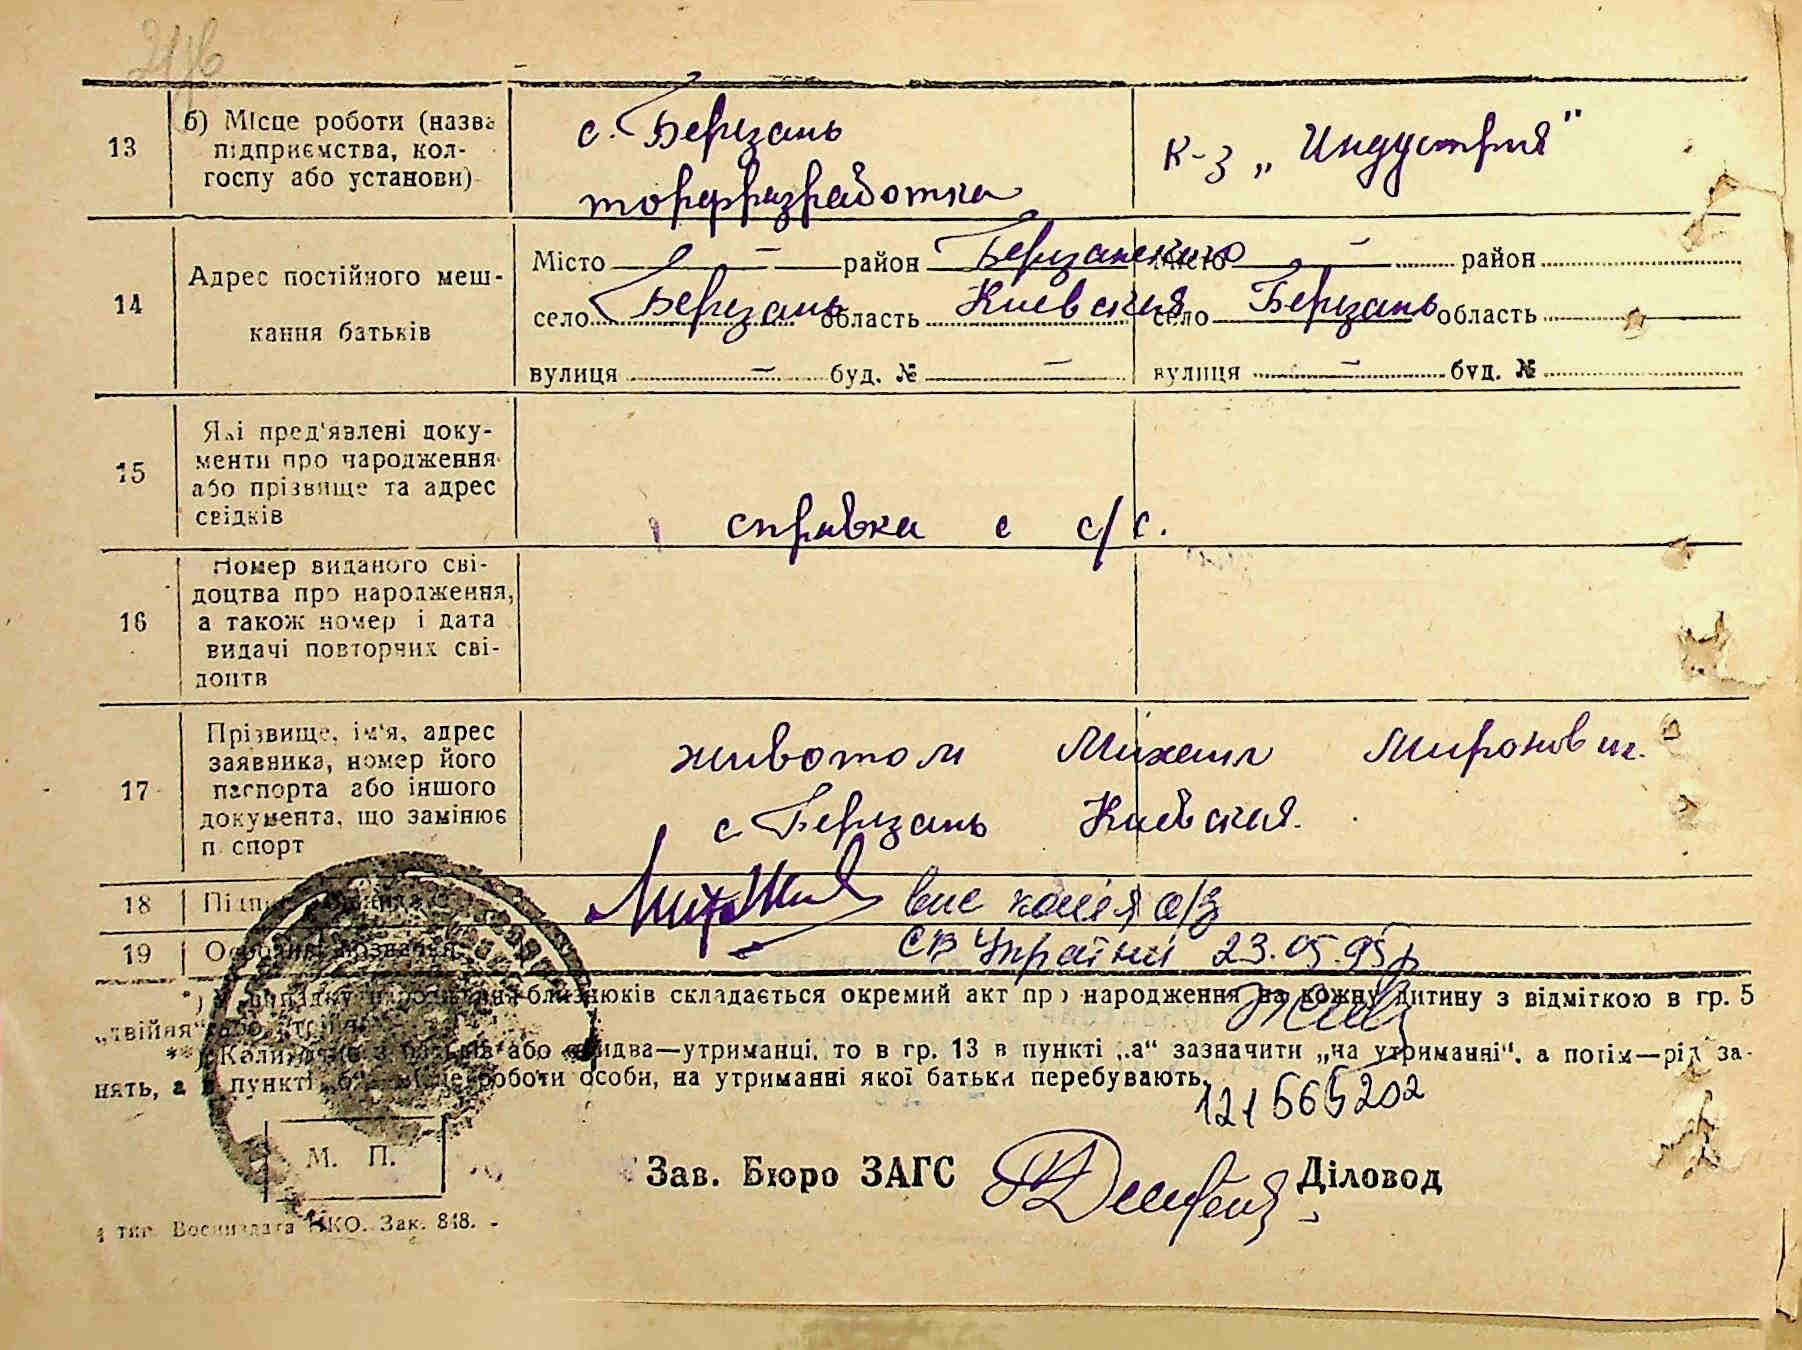 13
б) Місце роботи (назва
підприємства, кол-
госпу або установи)
с. Березань
торфразработка
к-з „Индустрия"
14
Адрес постійного меш-
кання батьків
Місто — район Березанского
село Березань область Киевская
вулиця — буд. № —
Місто — район
село Березань область
вулиця — буд. №
15
Які пред'явлені доку-
менти про народження
або прізвище та адрес
свідків
справка с с/с.
16
Номер виданого сві-
доцтва про народження,
а також номер і дата
видачі повторних сві-
доцтв
17
Прізвище, ім'я, адрес
заявника, номер його
паспорта або іншого
документа, що замінює
п спорт
Животом Михаил Миронович.
с Березань Киевская.
18
19
СВ України 23.05.95р
*) У випадку народження близнюків складається окремий акт про народження на кожну дитину з відміткою в гр. 5
„двійня"
**) Коли або обидва—утриманці, то в гр. 13 в пункті „а" зазначити „на утриманні", а потім—рід за-
нять, а в пункті „б" місце роботи особи, на утриманні якої батьки перебувають.
121565202
М. П.
Зав. Бюро ЗАГС
Діловод
4 тип. Воениздата НКО. Зак. 848.